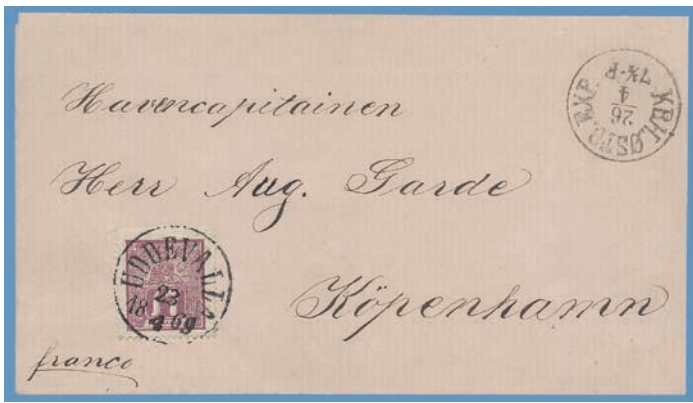 Havencapitainen
Herr Aug. Garde
Köpenhamn
franco
UDDEVALLA
23
18 4 69
KBH. ØSTR. EXP.
26
4